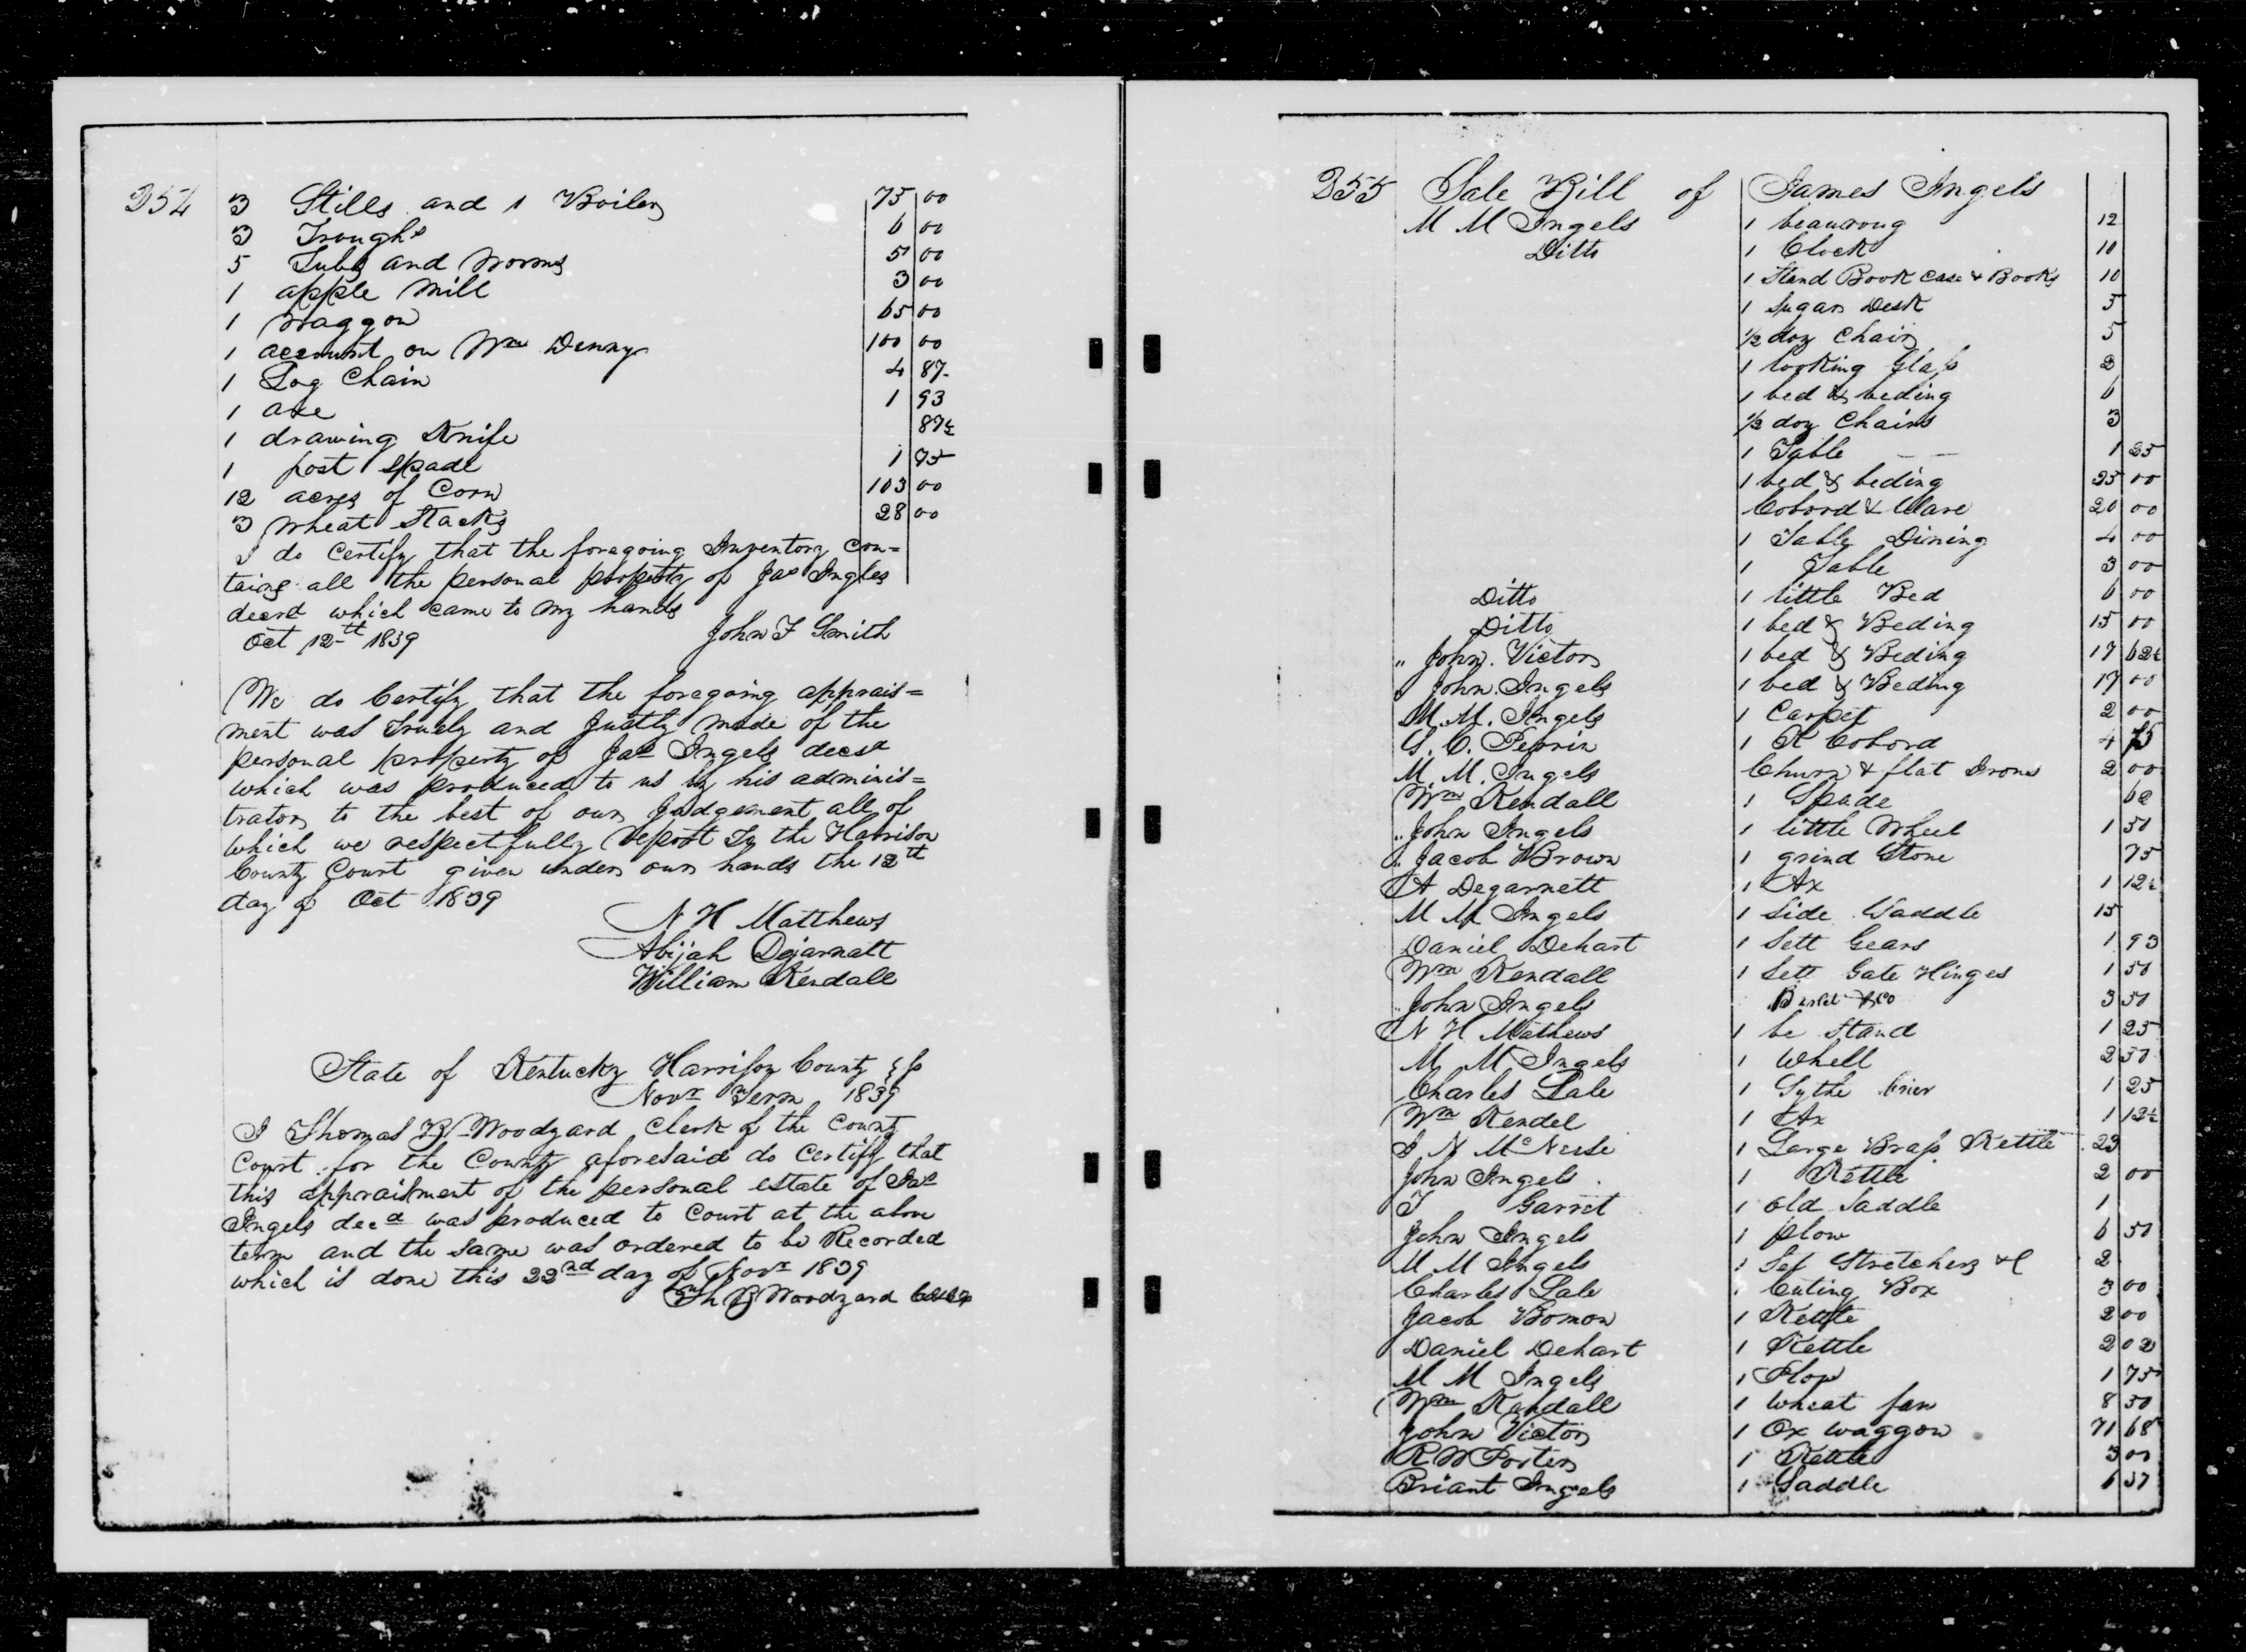 354 3 Stills and 1 Boiler 75 00
3 Troughs 6 00
5 Tubs and Worms 5 00
1 apple Mill 3 00
1 Waggon 65 00
1 account on Wm Denny 100 00
1 Log Chain 4 87
1 axe 1 93
1 drawing Knife 87½
1 post Spade 1 75
12 acres of Corn 103 00
3 Wheat Stacks 28 00
I do Certify that the foregoing Inventory con=
tains all the personal property of Jas Ingles
decsd which came to my hands
Oct 12th 1839 John F Smith
We do Certify that the foregoing apprais=
ment was Truely and Justly made of the
personal property of Jas Ingels decsd
which was produced to us by his adminis=
trator to the best of our Judgement all of
which we respectfully Report to the Harrison
County Court given under our hands the 12th
day of Oct 1839
N H Matthews
Abijah Dejarnatt
William Kendall
State of Kentucky Harrison County
Novr Term 1839
I Thomas B Woodyard Clerk of the County
Court for the County aforesaid do Certify that
this appraisment of the personal estate of Jas
Ingels decd was produced to Court at the above
term and the same was ordered to be Recorded
which is done this 22nd day of Novr 1839
Th B Woodyard
355 Sale Bill of James Ingels
M M Ingels 1 beauroug 12
Ditto 1 Clock 10
1 Stand Book Case & Books 10
1 Sugar Desk 5
½ doz Chairs 5
1 looking Glass 2
1 bed & beding 6
½ doz Chairs 3
1 Table 1 25
1 bed & beding 25 00
Cobord & Ware 20 00
1 Table Dining 4 00
1 Table 3 00
Ditto 1 little Bed 6 00
Ditto 1 bed & Beding 15 00
" John Victor 1 bed & Beding 17 62½
" John Ingels 1 bed & Beding 17 00
M. M. Ingels 1 Carpet 2 00
G. C. Perrin 1 K Cobord 4 75
M. M. Ingels Churn & flat Irons 2 00
Wm Kendall 1 Spade 62
" John Ingels 1 little Wheel 1 50
" Jacob Brown 1 grind Stone 75
A Degarnett 1 Ax 1 12½
M M Ingels 1 Side Saddle 15
Daniel Dehart 1 Sett Gears 1 93
Wm Kendall 1 Sett Gate Hinges 1 50
" John Ingels 3 50
N H Mathews 1 be Stand 1 25
M M Ingels 1 Whell 2 50
Charles Lale 1 Sythe brier 1 25
Wm Kendel 1 Ax 1 12½
I N McNeese 1 Large Brass Kettle 23
John Ingels 1 Kettle 2 00
T Garret 1 old Saddle 1
John Ingels 1 plow 6 50
M M Ingels 1 Set Stretchers &C 2
Charles Lale 1 Cuting Box 3 00
Jacob Bomon 1 Kettle 2 00
Daniel Dehart 1 Kettle 2 02
M M Ingels 1 Plow 1 75
Wm Kendall 1 Wheat fan 8 50
John Victor 1 Ox waggon 71 68
R W Porter 1 Kettle 3 00
Briant Ingels 1 Saddle 6 37